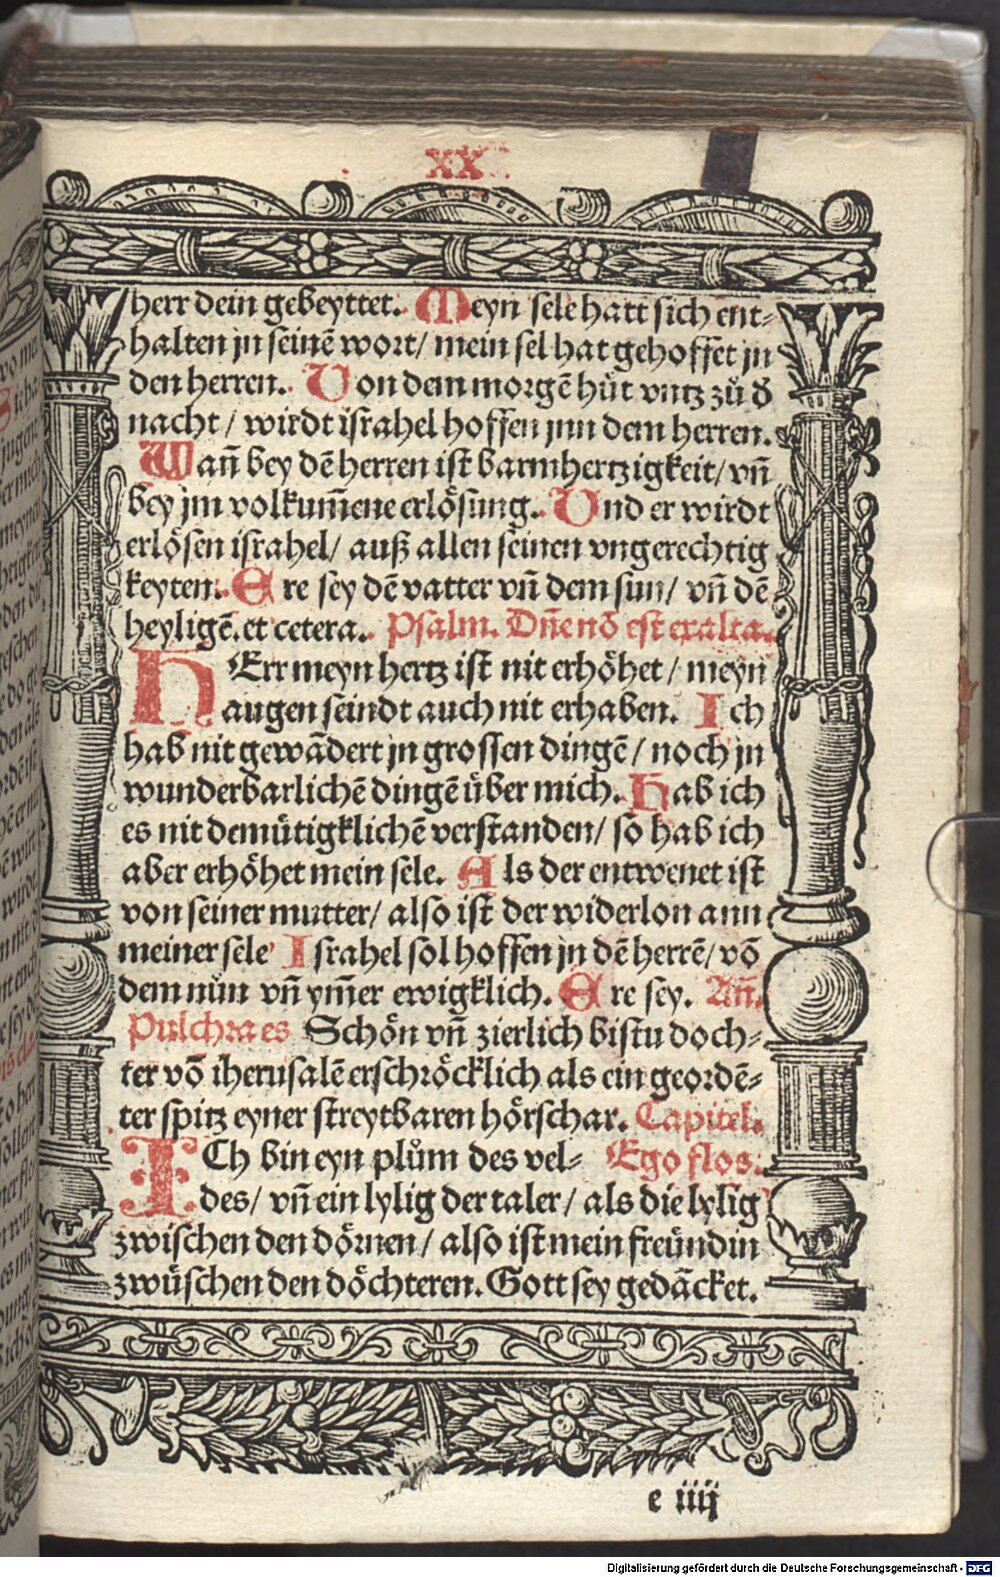 XX
herr dein gebeyttet. Meyn sele hatt sich ent⸗
halten jn seinē wort/ mein sel hat gehoffet jn
den herren. Von dem morgē hůt vntz zů đ
nacht / wirdt israhel hoffen jnn dem herren.
Wañ bey dē herren ist barmhertzigkeit/ vñ
bey jm volkum̄ene erlösung. Und er wirdt
erlösen israhel/ auß allen seinen vngerechtig
keyten. Ere sey dē vatter vñ dem sun/ vñ dē
heyligē. et cetera. Psalm. Dñe nō est exalta.
HErr meyn hertz ist nit erhöhet / meyn
augen seindt auch nit erhaben. Ich
hab nit gewādert jn grossen dingē / noch jn
wunderbarlichē dingē über mich. Hab ich
es nit demütigklichē verstanden/ so hab ich
aber erhöhet mein sele. Als der entwenet ist
von seiner mutter/ also ist der widerlon ann
meiner sele Israhel sol hoffen jn dē herrē/ vō
dem nůn vñ ym̄er ewigklich. Ere sey. Añ.
Pulchra es Schön vñ zierlich bistu doch⸗
ter vō iherusalē erschröcklich als ein geordē⸗
ter spitz eyner streytbaren hörschar. Capitel.
ICh bin eyn plům des vel⸗ Ego flos.
des/ vñ ein lylig der taler/ als die lylig
zwischen den dörnen / also ist mein freündin
zwüschen den döchteren. Gott sey gedācket.
e iiij
Digitalisierung gefördert durch die Deutsche Forschungsgemeinschaft - DFG